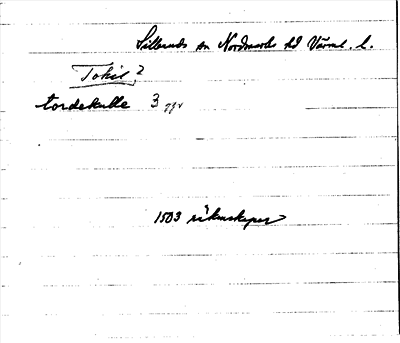 Silleruds sn Nordmarks hd Värml. l.
Tokil 2
tordekulle 3 ggr
1503 räkenskaper